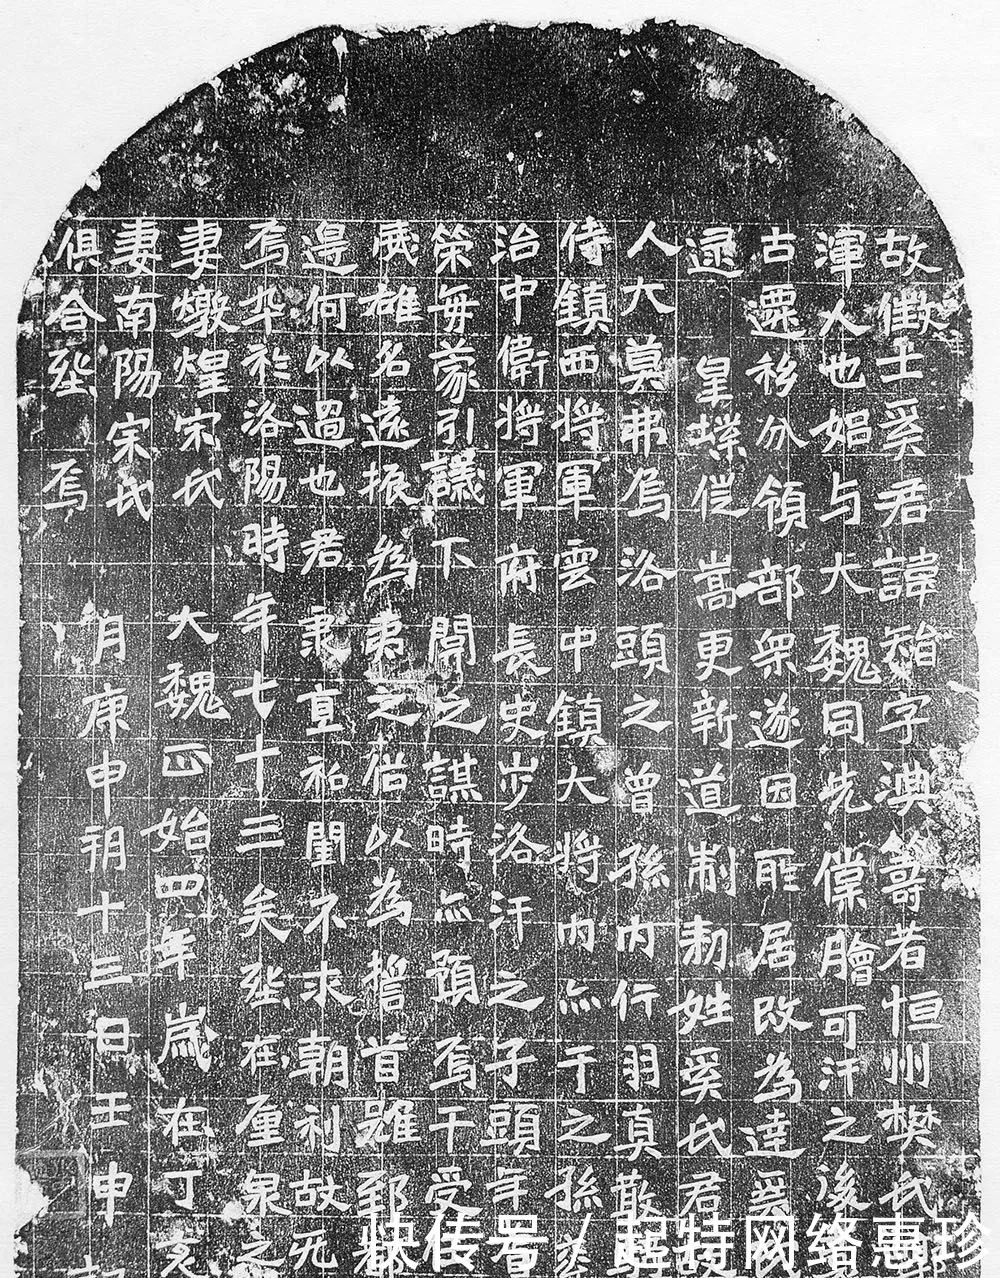 故徵士奚君諱智字淟䓫者恒州樊氏
渾人也始与大魏同先僕膾可汗之後
古遷移分領部眾遂因所居改為達奚
逯皇業徙嵩更新道制勅姓奚氏君
人大莫弗烏洛頭之曾孫內行羽真散
侍鎮西將軍雲中鎮大將內亦干之孫
治中衛將軍府長史步洛汗之子頭年
策每蒙引議下關之謀時亦預焉干受
威雄名遠振為夷之俗以為誓首雖郅
邊何以過也君秉直私闈不求朝利故死
焉卒於洛陽時年七十三矣塟在廛泉之
妻燉煌宋氏 大魏正始四年歲在丁亥
妻南陽宗氏 月庚申朔十三日壬申
俱合塟焉
快传号 / 起特网络惠珍